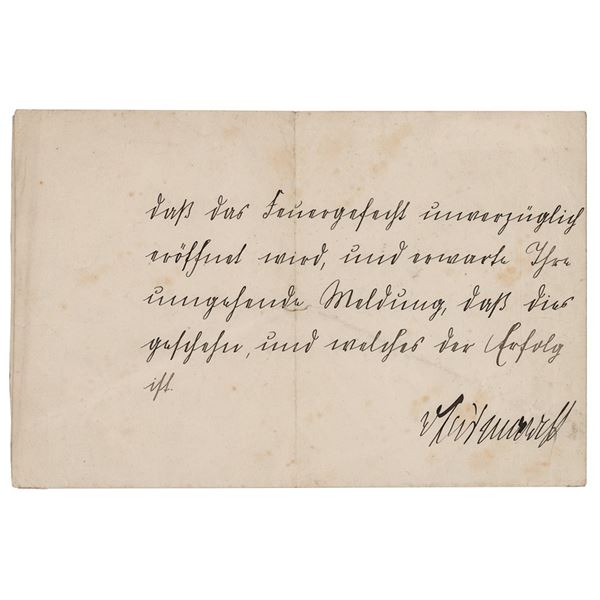 daß das Feuergefecht unverzüglich
eröffnet wird, und erwarte Ihre
umgehende Meldung, daß dies
geschehn, und welches der Erfolg
ist.
vBismarck